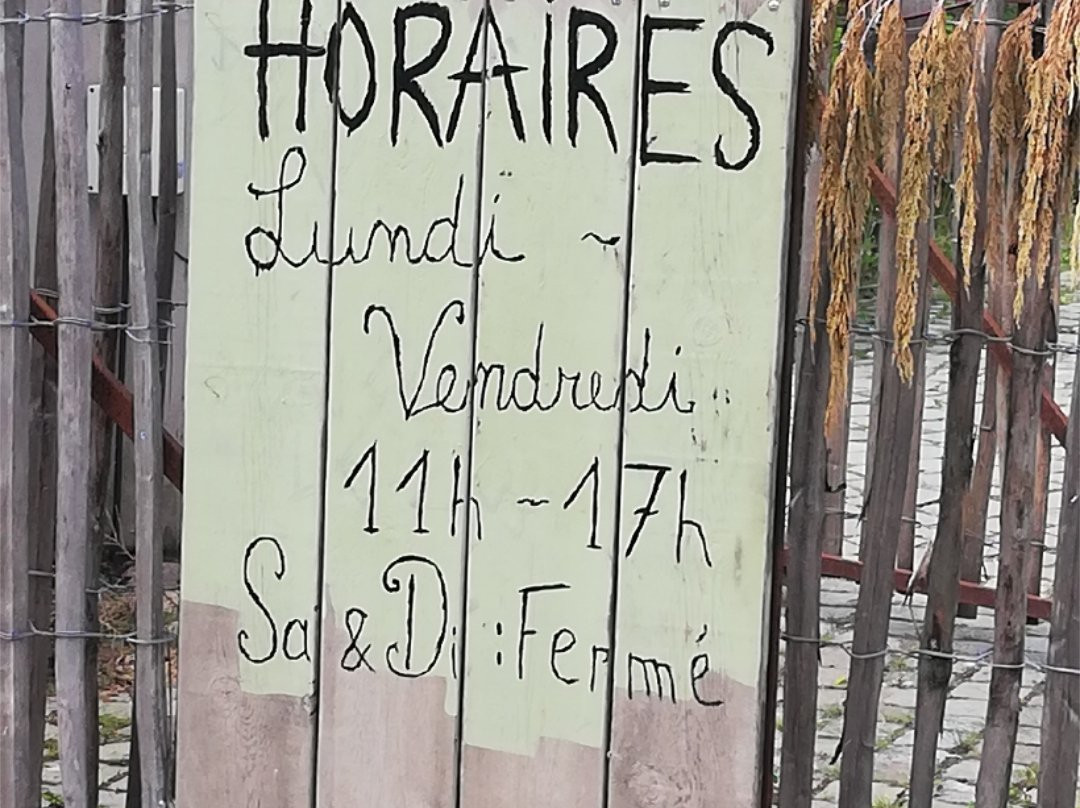 HORAIRES
Lundi ~
Vendredi
11h ~ 17h
Sa & Di : Fermé